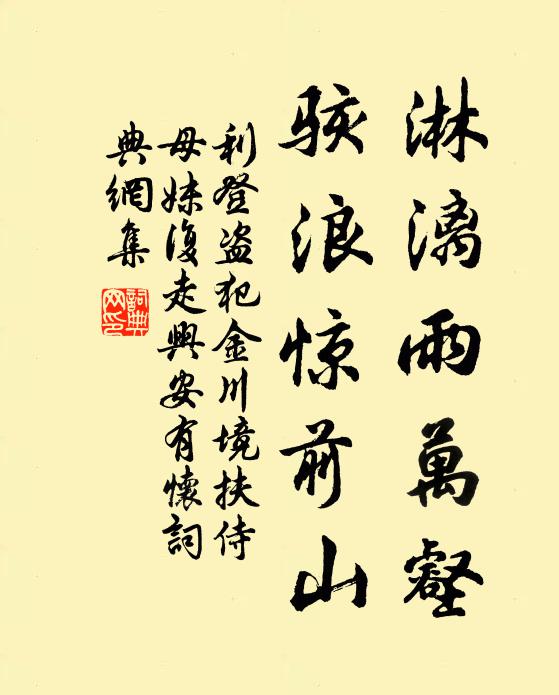 淋漓雨萬壑
駭浪惊前山
利登盗犯金川境扶侍
母妹復走興安有懷詞
典網集
詞典網印